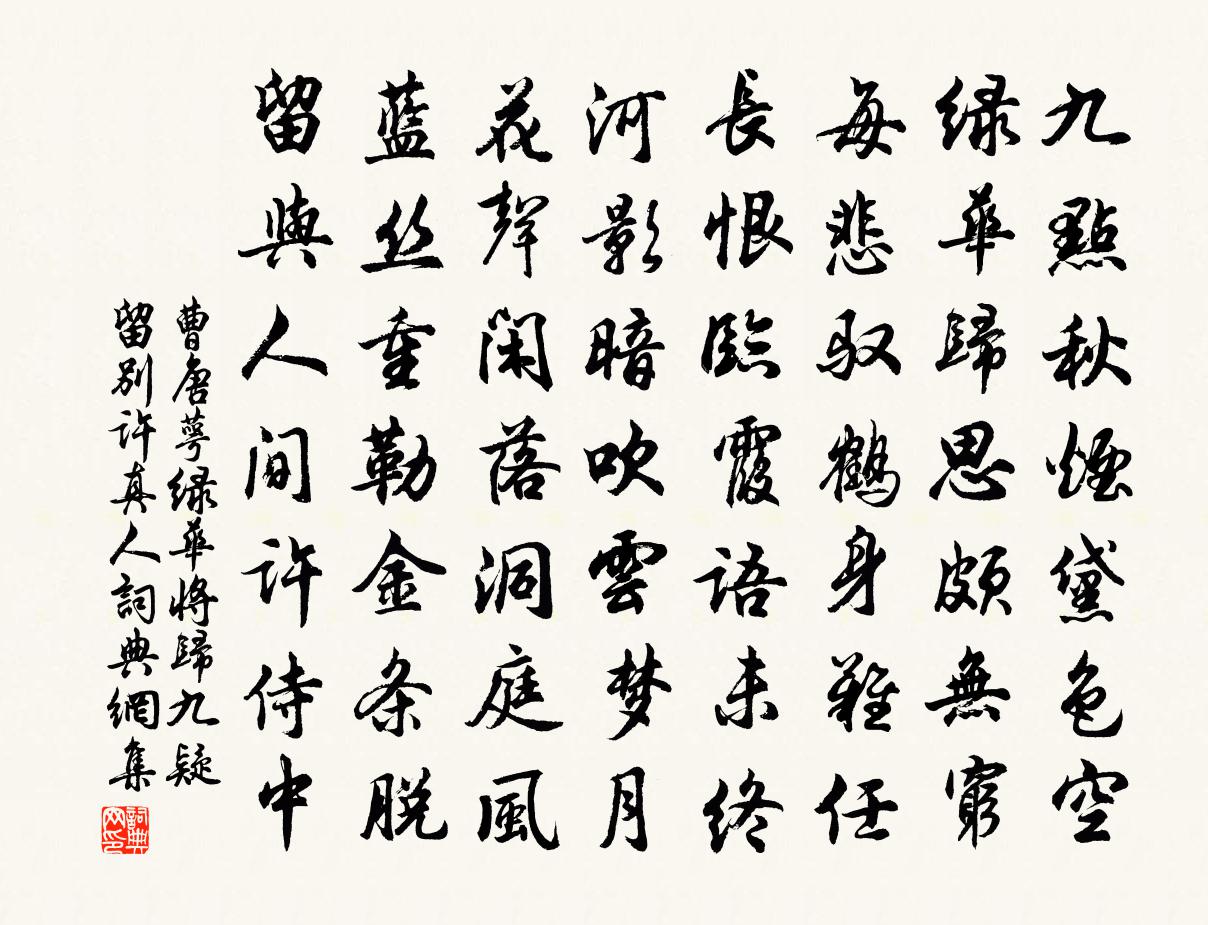 九點秋煙黛色空
緑華歸思頗無窮
每悲馭鶴身難任
長恨臨霞語未終
河影暗吹雲梦月
花聲閑落洞庭風
藍丝重勒金条脱
留與人间許侍中
曹唐萼緑華將歸九疑
留别許真人詞典網集
詞典网印